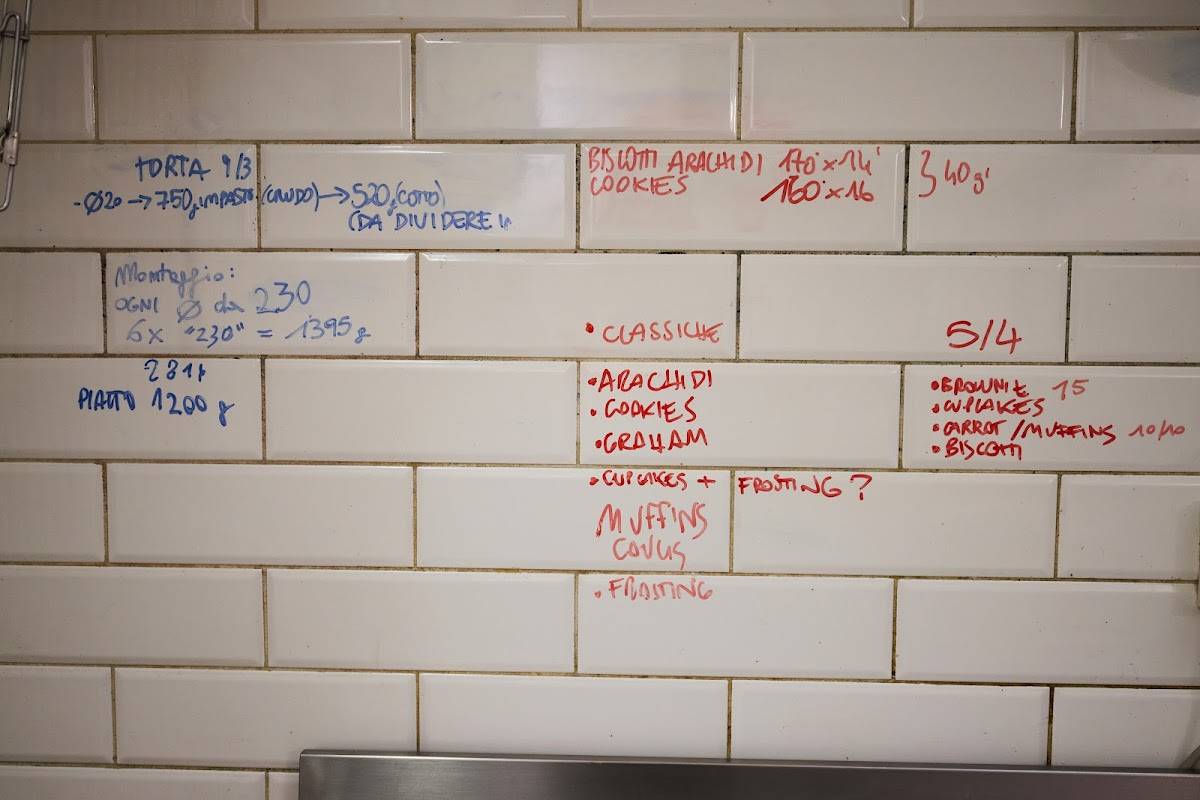 TORTA 9/3
- Ø20 → 750g IMPASTO (CRUDO) → 520g (COTTO)
(DA DIVIDERE
Montaggio:
OGNI Ø da 230
6x "230" = 1395g
281g
PIATTO 1200 g
BISCOTTI ARACHIDI 170° x 14'
COOKIES 160° x 16
} 40g
• CLASSICHE
• ARACHIDI
• COOKIES
• GRAHAM
• CUPCAKES + FROSTING?
MUFFINS
• FROSTING
5/4
• BROWNIE 15
• CUPCAKES
• CARROT / MUFFINS 10/10
• BISCOTTI